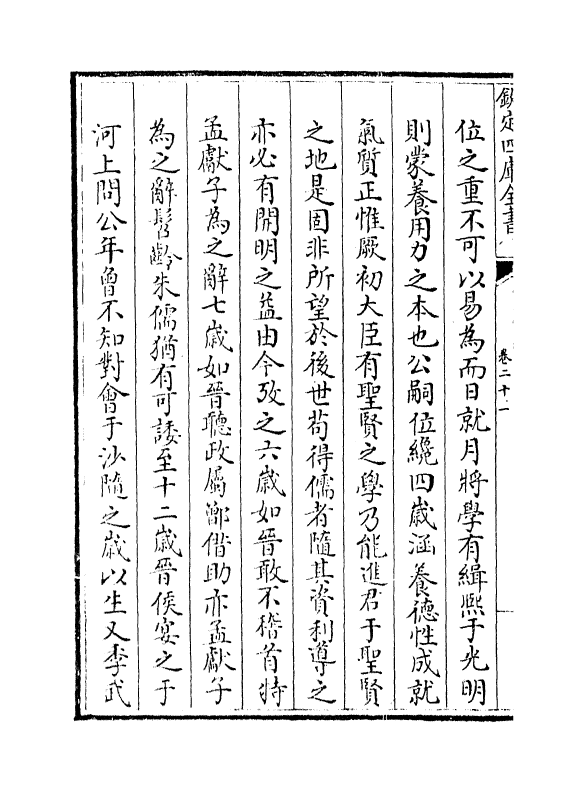 欽定四庫全書
卷二十二
位之重不可以易為而日就月將學有緝熙于光明
則蒙養用力之本也公嗣位纔四歲涵養德性成就
氣質正惟厥初大臣有聖賢之學乃能進君于聖賢
之地是固非所望於後世苟得儒者隨其資利導之
亦必有開明之益由今攷之六歲如晉敢不稽首特
孟獻子為之辭七歲如晉聽政屬鄫借助亦孟獻子
為之辭髫齡朱儒猶有可諉至十二歲晉侯宴之于
河上問公年曾不知對會于沙隨之歲以生又季武